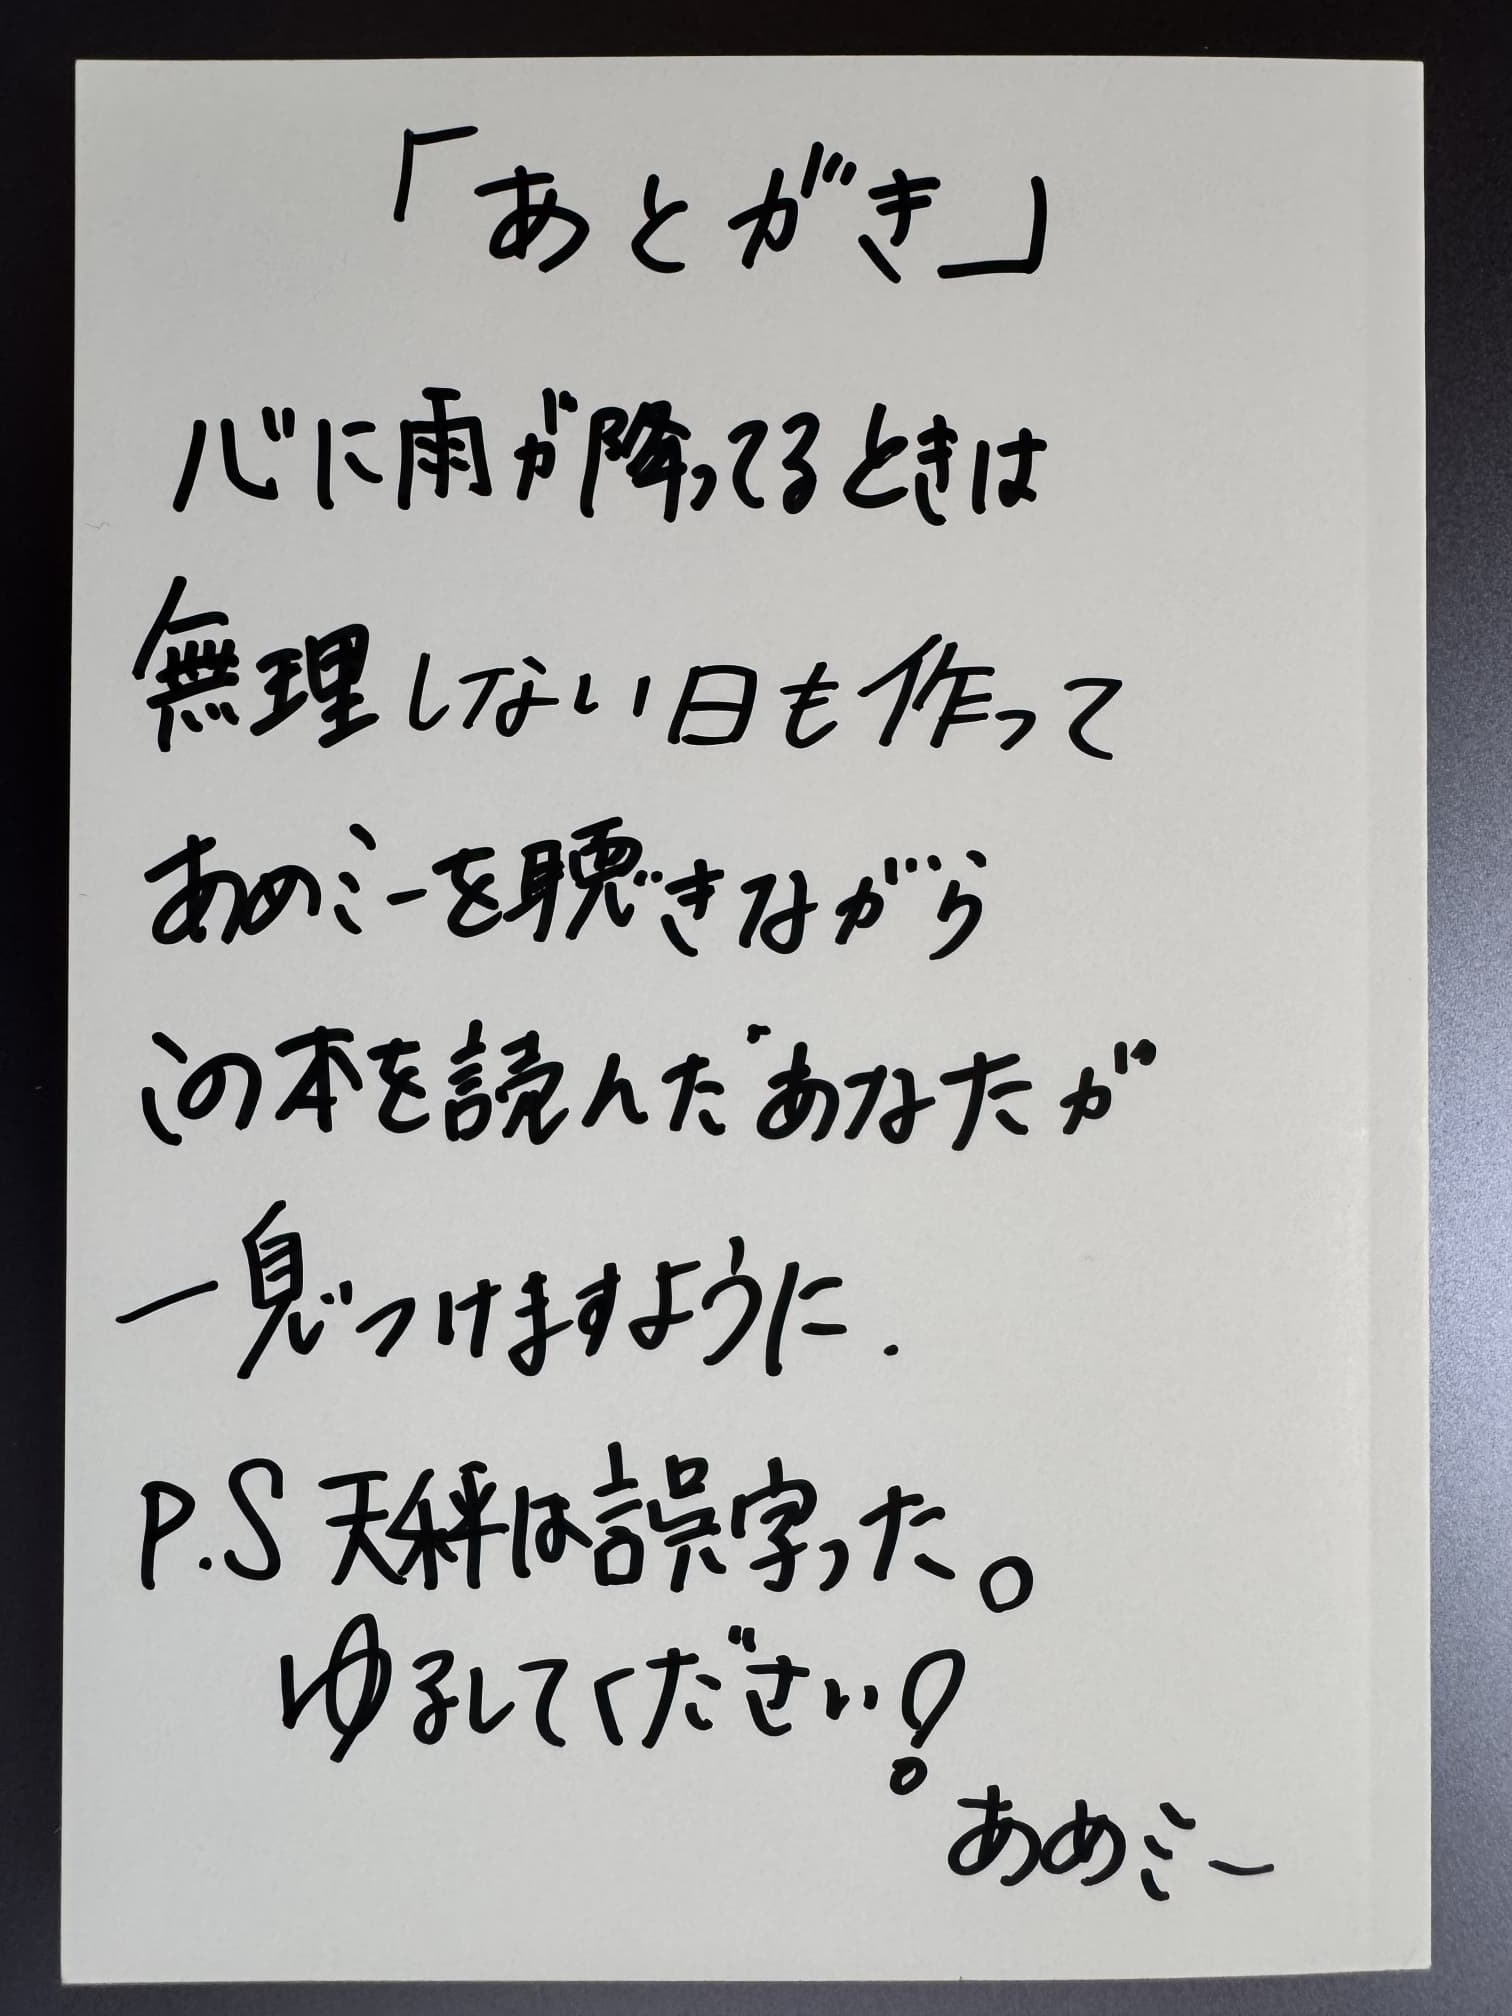 「あとがき」
心に雨が降ってるときは
無理しない日も作って
あめミーを聴きながら
この本を読んだあなたが
一息つけますように.
P.S 天秤は誤字った。
ゆるしてください!
あめミー